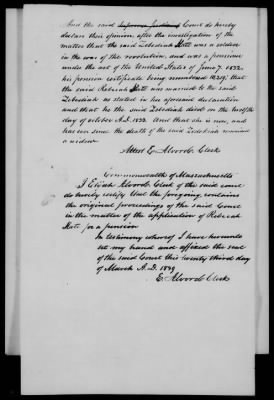 And the said Supreme Judicial Court do hereby
declare their opinion, after the investigation of the
matter that the said Zebediah State was a soldier
in the war of the revolution, and was a pensioner
under the act of the United States of June 7. 1832,
his pension certificate being numbered that
the said Rebecah State was married to the said
Zebediah as stated in his aforesaid declaration
and that he the said Zebediah died on the twelfth
day of October A.D. 1832. And that she is now, and
has ever since the death of the said Zebediah remained
a widow.
Attest E. Alvord. Clerk
Commonwealth of Massachusetts
I Elijah Alvord. Clerk of the said court
do hereby certify that the foregoing contains
the original proceedings of the said Court
in the matter of the application of Rebecah
State for a pension
In testimony whereof I have hereunto
set my hand and affixed the seal
of the said Court this twenty third day
of March A.D. 1839
E. Alvord. Clerk